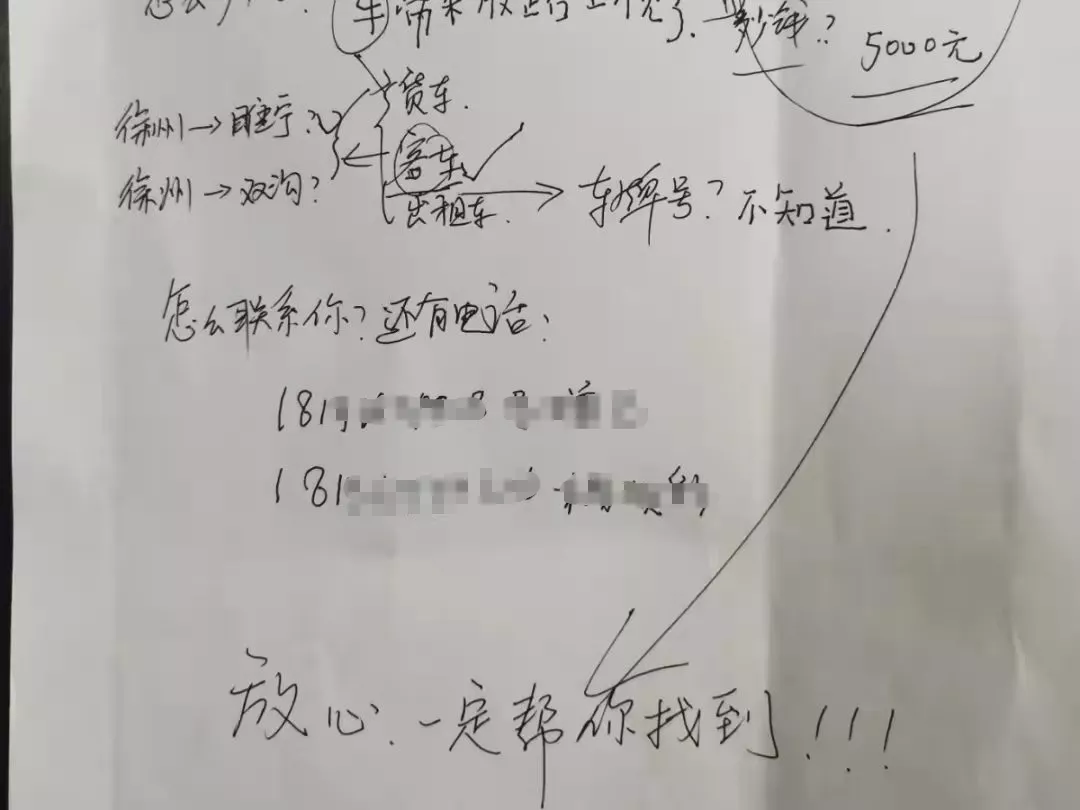 怎么
车 带来 了. 多少钱? 5000元
徐州→睢宁?
徐州→双沟?
货车.
客车
出租车.
车牌号? 不知道.
怎么联系你? 还有电话:
181
181
放心. 一定帮你找到!!!